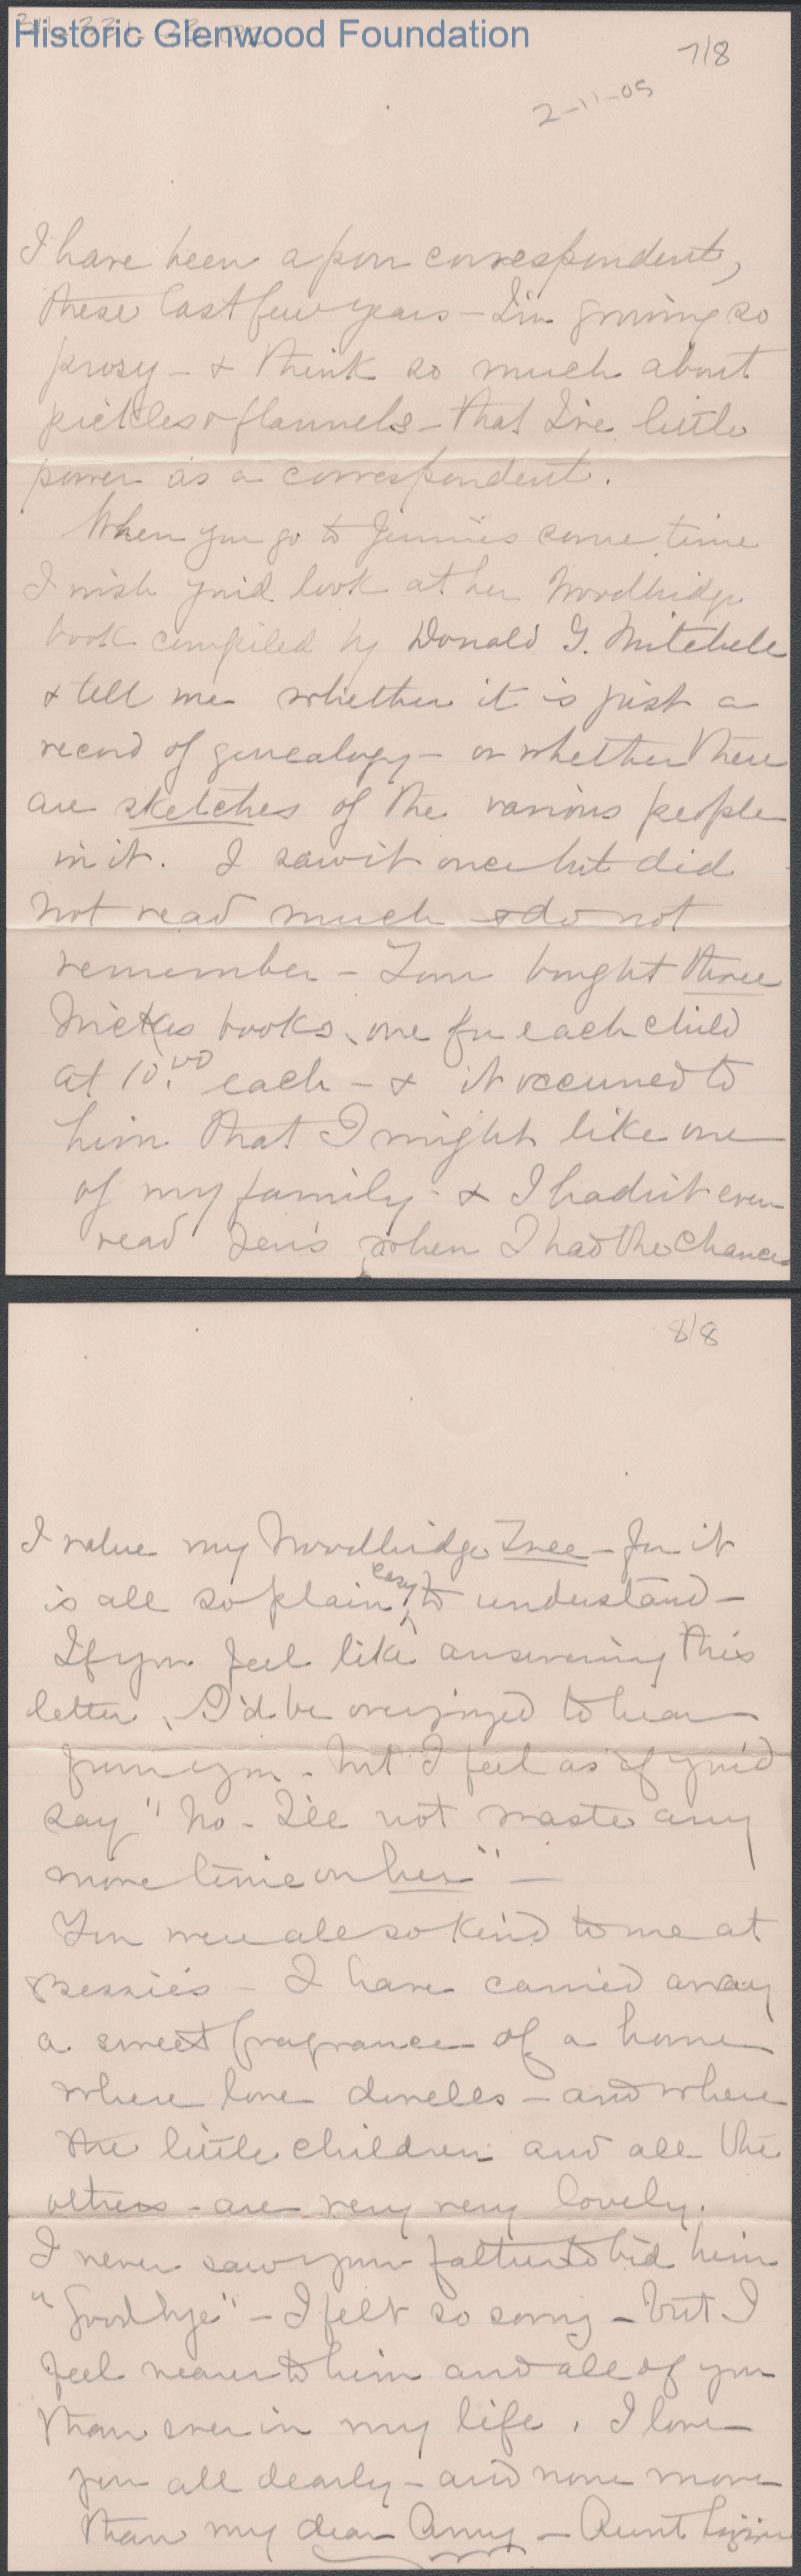 Historic Glenwood Foundation
7/8
2-11-05
I have been a poor correspondent,
these last few years - I'm growing so
prosy - & think so much about
pickles & flannels - that I've little
power as a correspondent.
When you go to Jennies some time
I wish you'd look at her Woodbridge
book compiled by Donald G. Mitchell
& tell me whether it is just a
record of genealogy - or whether there
are sketches of the various people
in it. I saw it once but did
not read much & do not
remember - Tom bought three
books, one for each child
at 10.00 each - & it occurred to
him that I might like one
of my family - & I hadn't even
read Jen's when I had the chance
8/8
I value my Woodbridge Tree - for it
is all so plain easy to understand -
If you feel like answering this
letter, I'd be overjoyed to hear
from you - but I feel as if you'd
say "No - I'll not waste any
more time on her" -
You were all so kind to me at
Bessie's - I have carried away
a sweet fragrance of a home
where love dwells - and where
the little children and all the
others - are very very lovely.
I never saw your father to bid him
"Goodbye" - I felt so sorry - but I
feel nearer to him and all of you
than ever in my life. I love
you all dearly - and none more
than my dear Amy - Aunt Lizzie